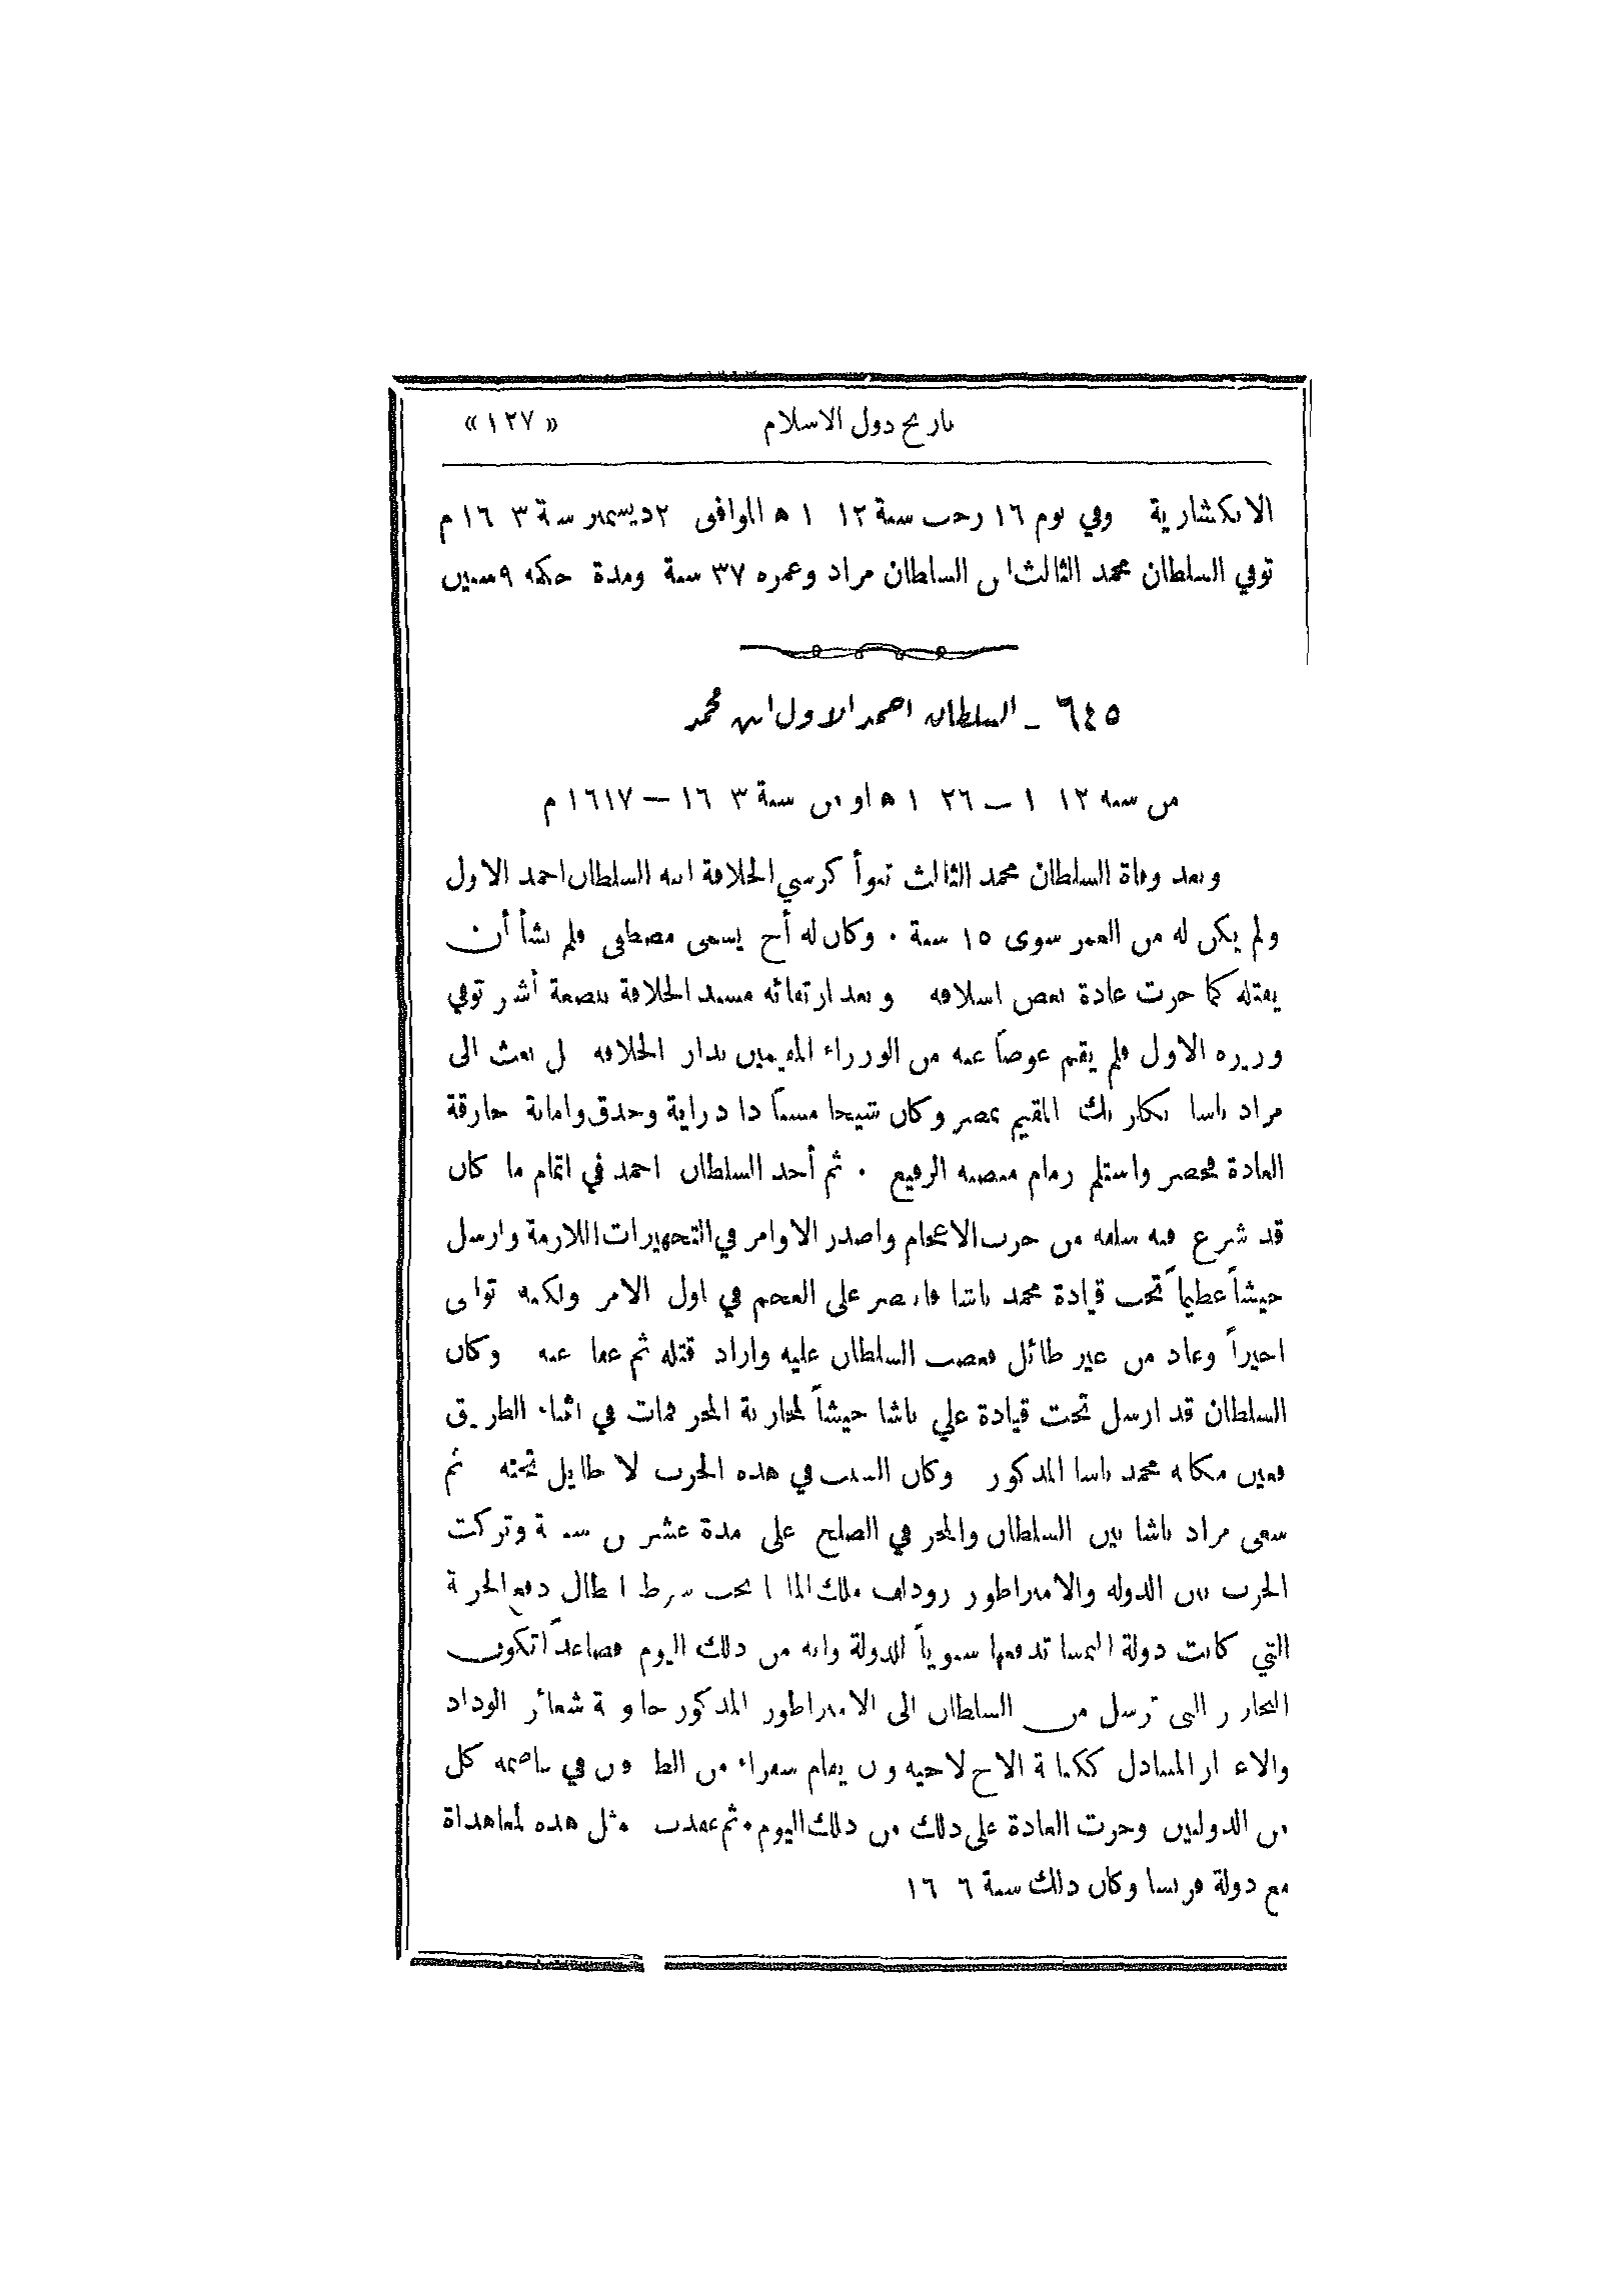 تاريخ دول الاسلام «١٢٧»
الانكشارية وفي يوم ١٦ رجب سنة ١٢ ١ ه الموافق ٢ ديسمبر سنة ٣ ١٦ م
توفي السلطان محمد الثالث ابن السلطان مراد وعمره ٣٧ سنة ومدة حكمه ٩ سنين
٦٤٥ ـ السلطان احمد الاول ابن محمد
من سنة ١٢ ١ – ٢٦ ١ ه او من سنة ٣ ١٦ – ١٦١٧ م
وبعد وفاة السلطان محمد الثالث تبوأ كرسي الخلافة ابنه السلطان احمد الاول
ولم يكن له من العمر سوى ١٥ سنة . وكان له أخ يسمى مصطفى فلم يشأ أن
يقتله كما جرت عادة بعض اسلافه وبعد ارتقائه مسند الخلافة ببضعة أشهر توفي
وزيره الاول فلم يقم عوضاً عنه من الوزراء المقيمين بدار الخلافة بل بعث الى
مراد باشا بكلر بك المقيم بمصر وكان شيخا مسناً ذا دراية وحذق وامانة خارقة
العادة فحضر واستلم زمام منصبه الرفيع . ثم أخذ السلطان احمد في اتمام ما كان
قد شرع فيه سلفه من حرب الاعجام واصدر الاوامر في التجهيزات اللازمة وارسل
جيشاً عظيماً تحت قيادة محمد باشا فانتصر على العجم في اول الامر ولكنه توانى
اخيراً وعاد من غير طائل فغضب السلطان عليه واراد قتله ثم عفا عنه وكان
السلطان قد ارسل تحت قيادة علي باشا جيشاً لمحاربة المجر فمات في اثناء الطريق
فعين مكانه محمد باشا المذكور وكان السبب في هذه الحرب لا طايل تحته ثم
سعى مراد باشا بين السلطان والمجر في الصلح على مدة عشرين سنة وتركت
الحرب بين الدولة والامبراطور رودلف ملك المانيا تحت شرط ابطال دفع الجزية
التي كانت دولة النمسا تدفعها سنوياً للدولة وانه من ذلك اليوم فصاعداً تكون
التحارير التي ترسل من السلطان الى الامبراطور المذكور حاوية شعائر الوداد
والاعتبار المتبادل ككتابة الاخ لاخيه وان يقام سفراء من الطرفين في عاصمة كل
من الدولتين وجرت العادة على ذلك من ذلك اليوم . ثم عقدت مثل هذه لمعاهداة
مع دولة فرنسا وكان ذلك سنة ٦ ١٦